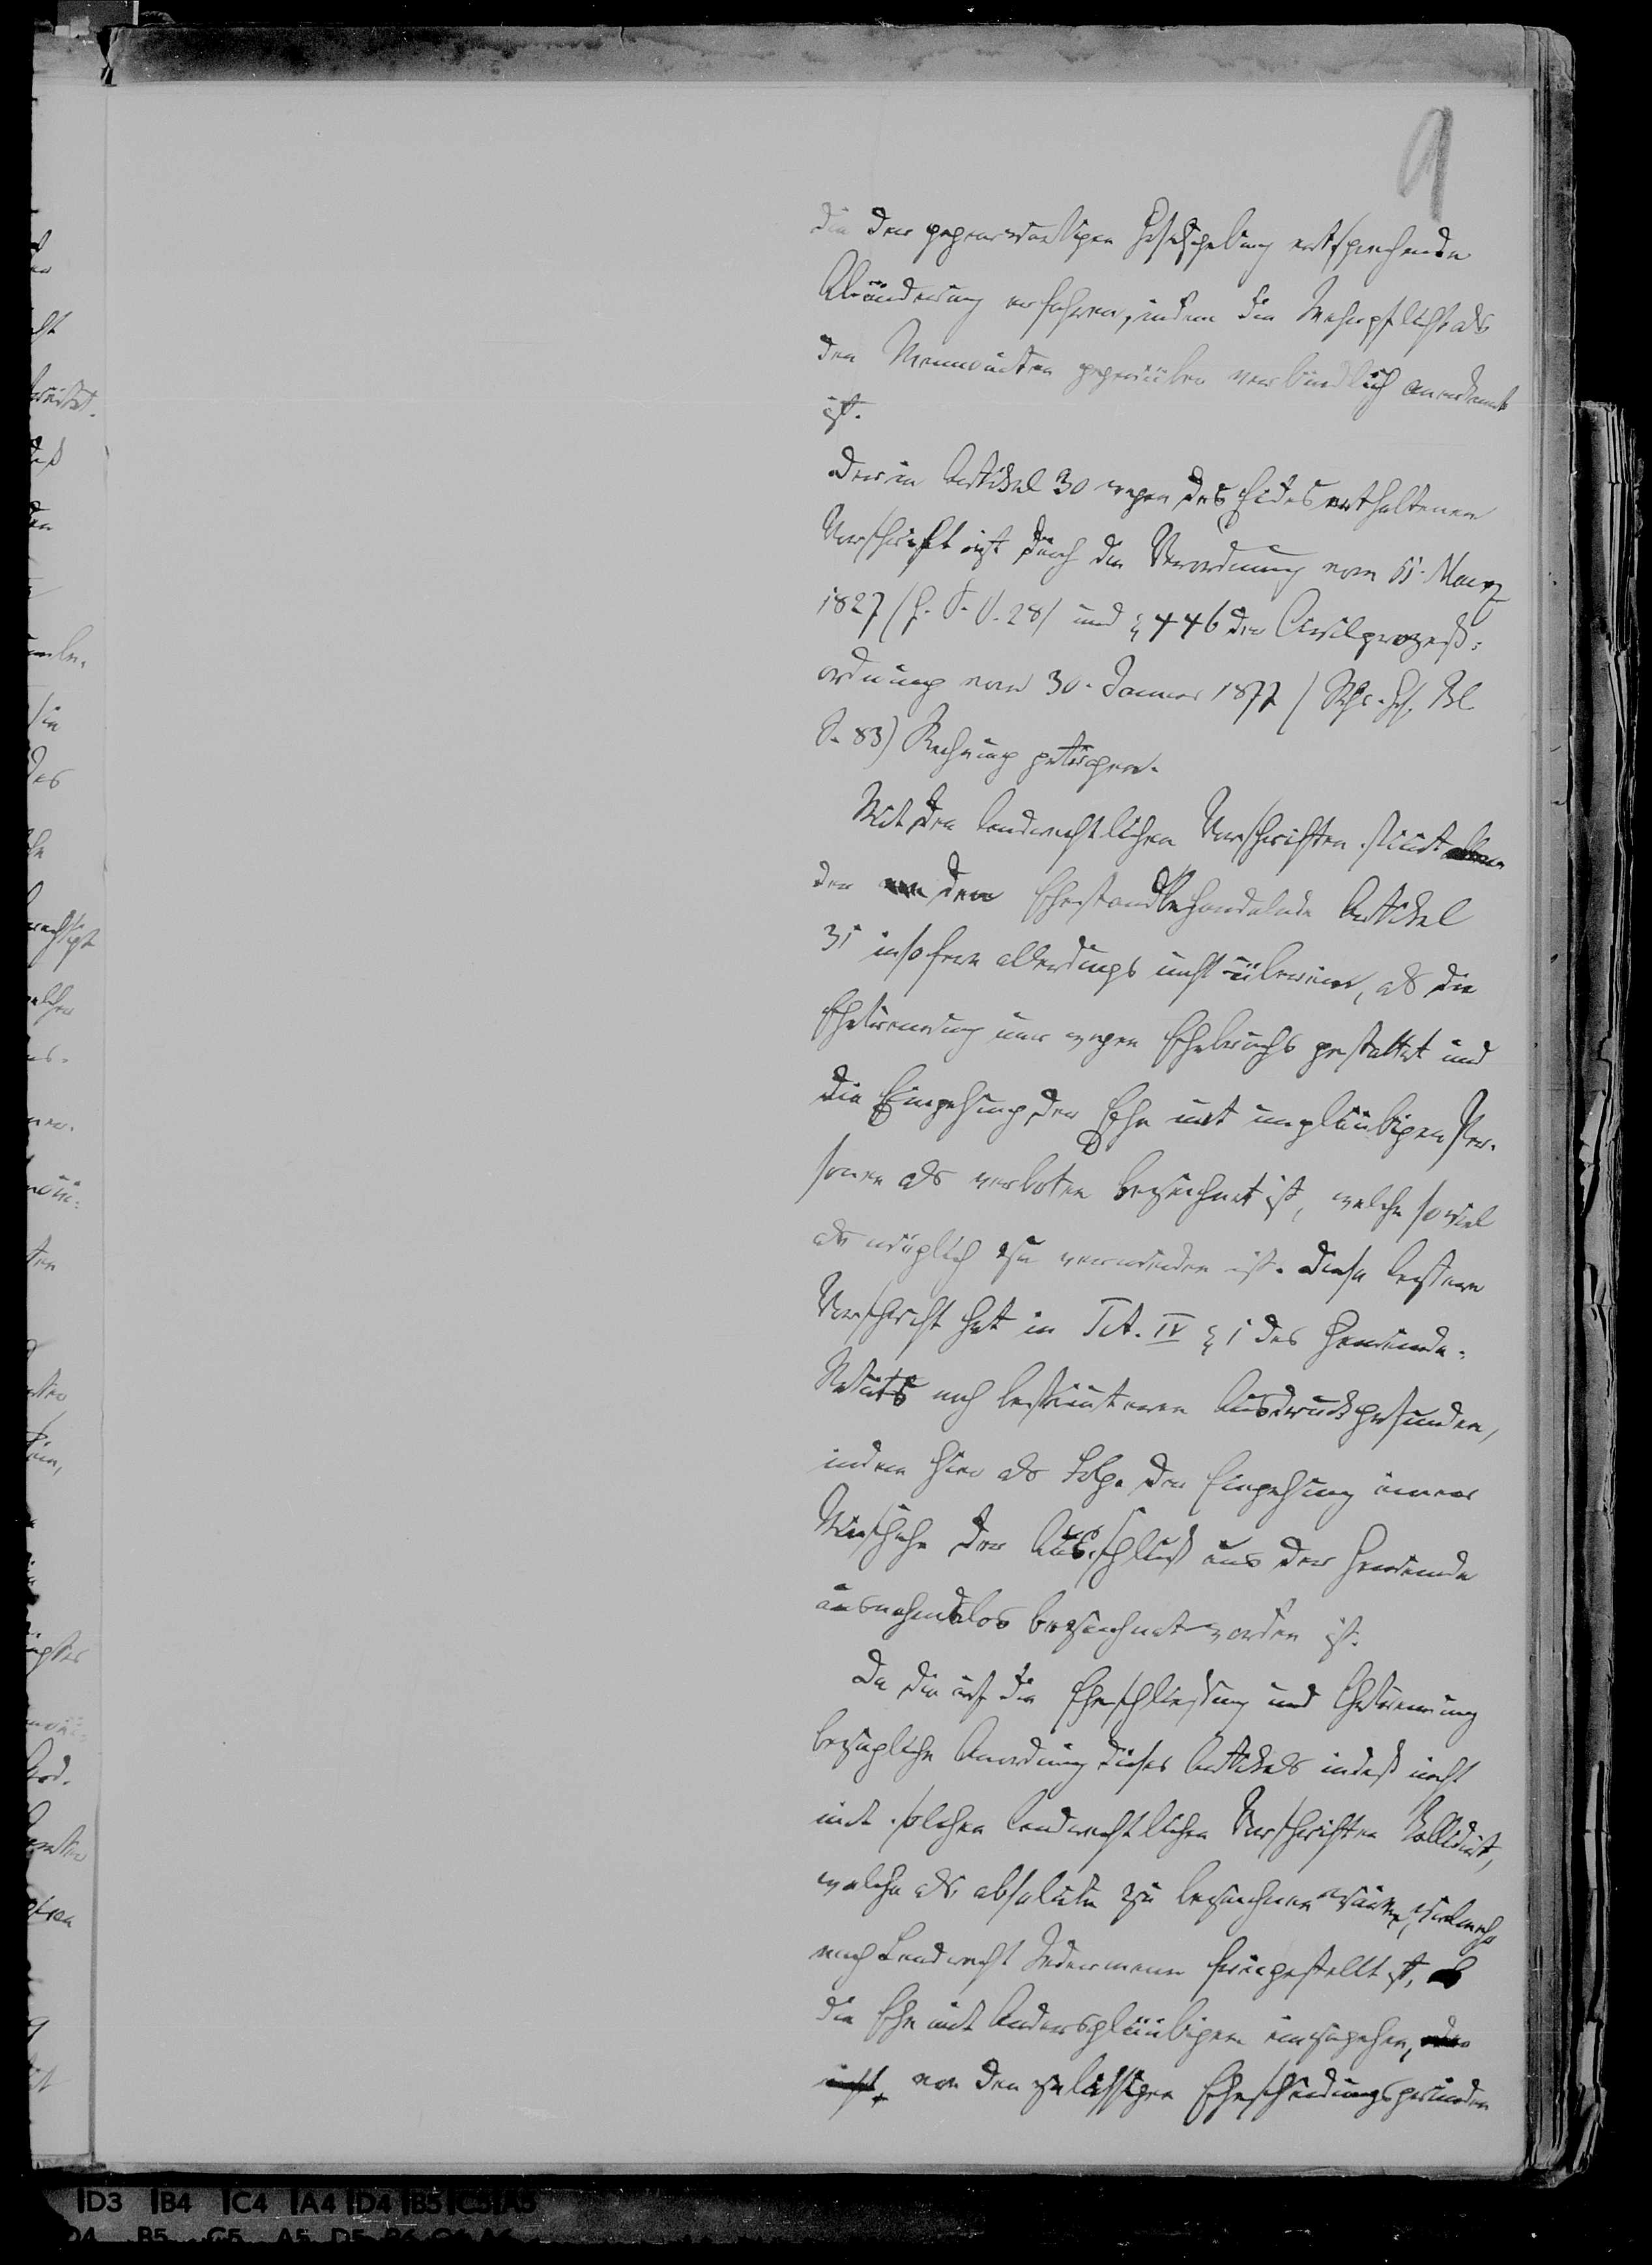 9
die der gegenwärtigen Gesetzgebung entsprechende
Abänderung erfahren, indem die Wehrpflicht als
den Mennoniten gegenüber verbindlich anerkannt
ist.
Der in Artikel 30 wegen des Eides enthaltenen
Vorschrift ist durch die Verordnung vom 11. Maerz
1827 (G. S. S. 28) und § 446 der Civilprozeß-
ordnung vom 30. Januar 1877 (Rchs. Ges. Bl.
S. 83) Rechnung getragen.
Mit den landrechtlichen Vorschriften stimmt
der den Ehestand behandelnde Artikel
31 insofern allerdings nicht überein, als die
Ehetrennung nur wegen Ehebruchs gestattet und
die Eingehung der Ehe mit ungläubigen Per-
sonen als verboten bezeichnet ist, welche soviel
als möglich zu vermeiden ist. Diese letztere
Vorschrift hat in Tit. IV § 1 des Gemeinde-
Statuts noch bestimmteren Ausdruck gefunden,
indem hier als Folge der Eingehung einer
Mischehe der Ausschluß aus der Gemeinde
ausnahmslos bezeichnet worden ist.
Da die auf die Eheschließung und Ehetrennung
bezügliche Anordnung dieses Artikels indeß nicht
mit solchen landrechtlichen Vorschriften kollidirt,
welche als absolute zu bezeichnen wären, vielmehr
nach Landrecht Jedermann freigestellt ist,
die Ehe mit Andersgläubigen einzugehen,
von den zulässigen Ehescheidungsgründen
D3 B4 C4 A4 D4 B5 C5 A5
D4 B5 C5 A5 D5 B6 C6 A6